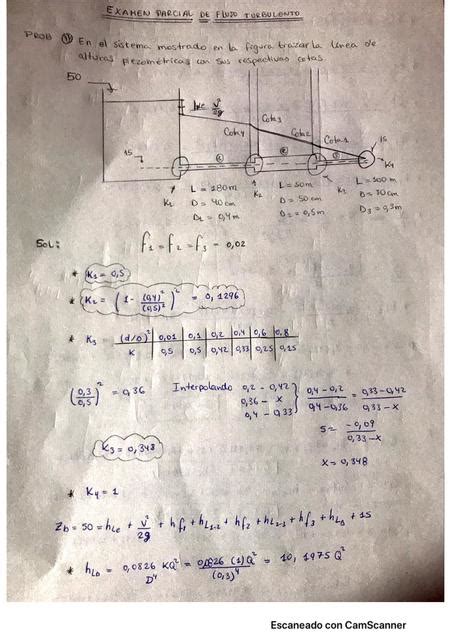 EXAMEN PARCIAL DE FLUJO TURBULENTO
PROB En el sistema mostrado en la figura trazar la linea de
alturas piezométricas con sus respectivas cotas.
50
hLe V²/2g
Cota 4
Cota 3
Cota 2
Cota 1
15
15
K4
K1
L = 280m
D = 40 cm
D1 = 0,4m
K2
L = 50m
D = 50 cm
D2 = 0,5m
K3
L = 100m
D = 30 cm
D3 = 0,3m
Sol:
f1 = f2 = f3 = 0,02
* K1 = 0,5
* K2 = (1 - (0,4)²/(0,5)²)² = 0,1296
* K3
(d/D)² 0,01 0,1 0,2 0,4 0,6 0,8
K 0,5 0,5 0,42 0,33 0,25 0,15
(0,3/0,5)² = 0,36
Interpolando
0,2 - 0,42
0,36 - x
0,4 - 0,33
(0,4 - 0,2)/(0,4 - 0,36) = (0,33 - 0,42)/(0,33 - x)
5 = -0,09/(0,33 - x)
x = 0,348
K3 = 0,348
* K4 = 1
Zb = 50 = hLe + V²/2g + hf1 + hL1-2 + hf2 + hL2-3 + hf3 + hLs + 15
* hLo = 0,0826 KQ²/D⁴ = 0,0826 (1)Q²/(0,3)⁴ = 10,1975 Q²
Escaneado con CamScanner